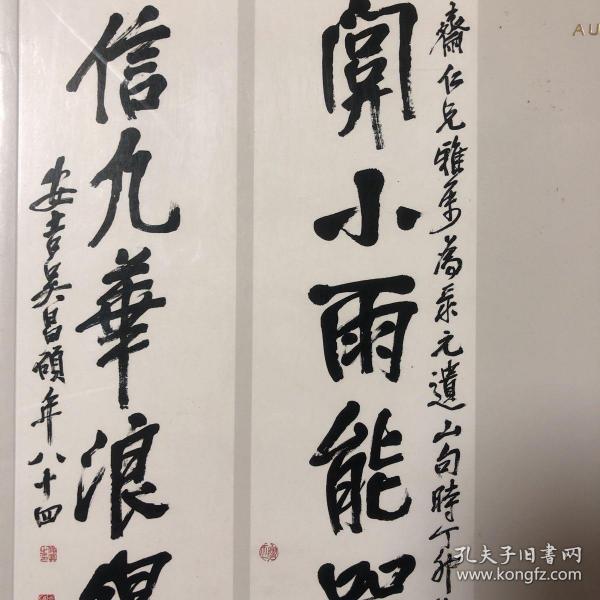 齋仁兄雅屬為集元遺山句時丁卯
開小雨能
信九華浪得
安吉吳昌碩年八十四
AU
孔夫子旧书网
www.kongfz.com